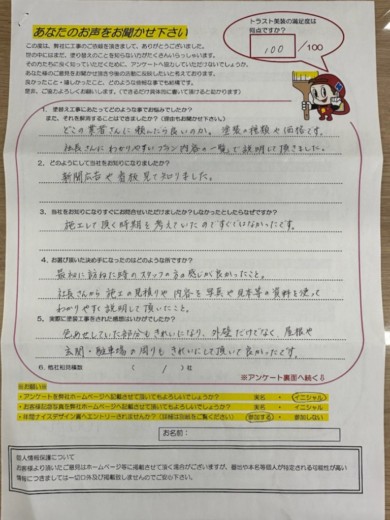 あなたのお声をお聞かせ下さい
トラスト美装の満足度は
何点ですか?
100 /100
この度は、弊社に工事のご依頼を頂きまして、ありがとうございました。
世の中にはまだ、塗り替えのことを知らない方がたくさんいらっしゃいます。
その方たちに多く知っていただくために、アンケートへ協力していただけないでしょうか。
あなた様のご意見をお聞かせ頂き今後の活動に反映したいと考えております。
良かったこと・嬉しかったこと、どのような些細な事でも結構です。
是非、ご協力よろしくお願いします。(できるだけ具体的に書いて頂けると助かります)
1、塗替え工事にあたってどのような事でお悩みでしたか?
また、それを解消することはできましたか?(理由もお聞かせ下さい)
どこの業者さんに頼んだら良いのか。塗装の種類や価格です。
社長さんにわかりやすいプラン内容の一覧で説明して頂きました。
2、どのようにして当社をお知りになりましたか?
新聞広告や看板見て知りました。
3、当社をお知りになりすぐにお問合せいただけましたか?しなかったとしたらなぜですか?
施工して頂く時期を考えていたのですぐではなかったです。
4、お選び頂いた決め手になったのはどのような所ですか?
最初に訪ねた時のスタッフの方の感じが良かったこと。
社長さんから施工の見積りや内容を写真や見本等の資料を使って
わかりやすく説明して頂いたこと。
5、実際に塗装工事をされた感想はいかがでしたか?
色あせしていた部分もきれいになり、外壁だけでなく、屋根や
玄関・駐車場の周りもきれいにして頂いて良かったです。
6、他社相見積数 ( / )社
※アンケート裏面へ続く
※お願い※
・アンケートを弊社ホームページへ記載させて頂いてもよろしいでしょうか? 実名 ・ イニシャル
・お客様記念写真を弊社ホームページへ記載させて頂いてもよろしいでしょうか? 実名 ・ イニシャル
参加する ・ 参加しない
お名前:
個人情報保護について
お客様より頂いたご意見はホームページ等に掲載させて頂く場合がございますが、個人や本名等個人が特定される可能性が高い
情報につきましては一切口外及び掲載致しませんのでご安心下さい。